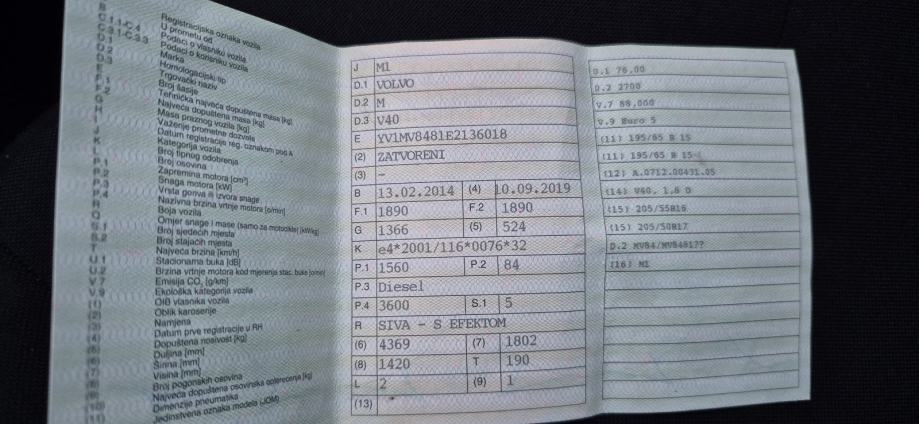 B Registracijska oznaka vozila
U prometu od
C.1.1-C.4 Podaci o vlasniku vozila
C.3.1-C.3.3 Podaci o korisniku vozila
D.1 Marka
D.2 Homologacijski tip
D.3 Trgovački naziv
E Broj šasije
F.1 Tehnička najveća dopuštena masa [kg]
F.2 Najveća dopuštena masa [kg]
G Masa praznog vozila [kg]
H Važenje prometne dozvole
I Datum registracije reg. oznakom pod A
J Kategorija vozila
K Broj tipnog odobrenja
L Broj osovina
P.1 Zapremina motora [cm³]
P.2 Snaga motora [kW]
P.3 Vrsta goriva ili izvora snage
P.4 Nazivna brzina vrtnje motora [o/min]
R Boja vozila
Q Omjer snage i mase (samo za motocikle) [kW/kg]
S.1 Broj sjedećih mjesta
S.2 Broj stajaćih mjesta
T Najveća brzina [km/h]
U.1 Stacionarna buka [dB]
U.2 Brzina vrtnje motora kod mjerenja stac. buke [o/min]
V.7 Emisija CO₂ [g/km]
V.9 Ekološka kategorija vozila
(1) OIB vlasnika vozila
(2) Oblik karoserije
(3) Namjena
(4) Datum prve registracije u RH
(5) Dopuštena nosivost [kg]
(6) Duljina [mm]
(7) Širina [mm]
(8) Visina [mm]
(9) Broj pogonskih osovina
(10) Najveća dopuštena osovinska opterećenja [kg]
(11) Dimenzije pneumatika
Jedinstvena oznaka modela (JOM)
J M1
D.1 VOLVO
D.2 M
D.3 V40
E YV1MV8481E2136018
(2) ZATVORENI
(3) -
B 13.02.2014 (4) 10.09.2019
F.1 1890 F.2 1890
G 1366 (5) 524
K e4*2001/116*0076*32
P.1 1560 P.2 84
P.3 Diesel
P.4 3600 S.1 5
R SIVA - S EFEKTOM
(6) 4369 (7) 1802
(8) 1420 T 190
L 2 (9) 1
(13)
U.1 76,00
U.2 2700
V.7 88,000
V.9 Euro 5
(11) 195/65 R 15
(11) 195/65 R 15
(12) A.0712.00431.05
(14) V40, 1,6 D
(15) 205/55R16
(15) 205/50R17
D.2 MV84/MV8481??
(16) M1